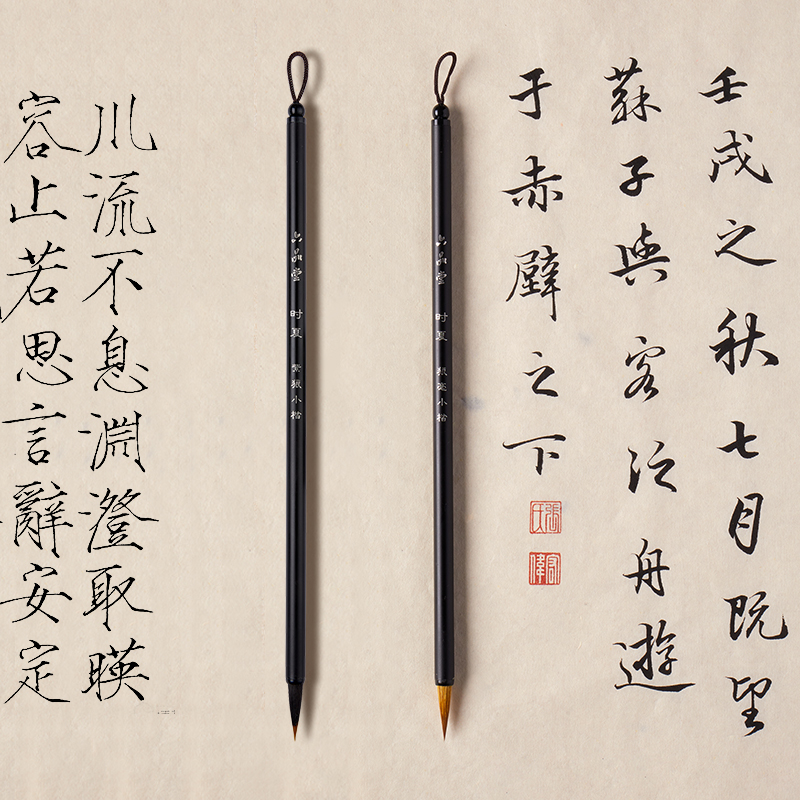 壬戌之秋七月既望
蘇子與客泛舟遊
于赤壁之下
張氏
宏偉
六品堂 时夏 狼毫小楷
六品堂 时夏 紫狼小楷
川流不息淵澄取暎
容止若思言辭安定